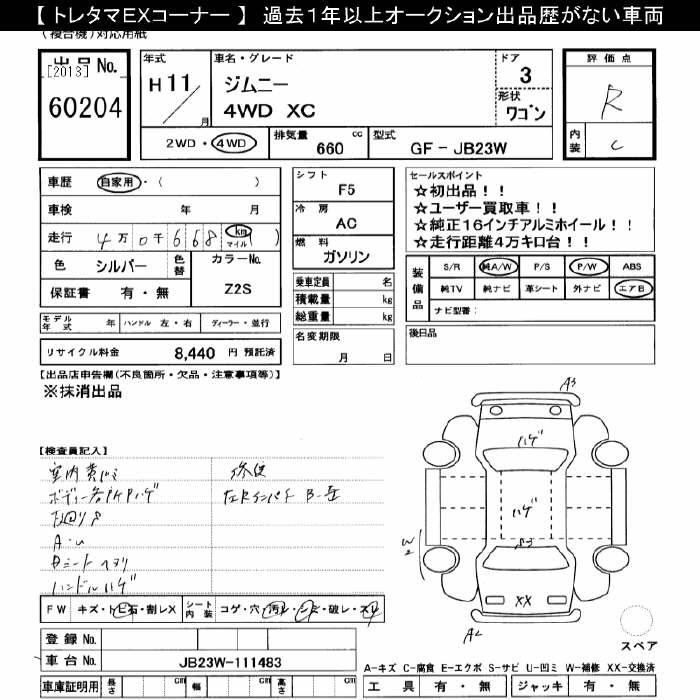 【 トレタマEXコーナー 】 過去1年以上オークション出品歴がない車両
(複合機) 対応用紙
出品 No.
[2013]
60204
年式
H 11/ 月
車名・グレード
ジムニー
4WD XC
ドア
3
形状
ワゴン
評価点
R
内装
C
2WD・4WD
排気量 660 cc
型式 GF - JB23W
車歴 自家用・( )
車検 年 月
走行 4万0千668 km マイル ( )
色 シルバー 色替
カラーNo.
Z2S
保証書 有・無
シフト
F5
冷房
AC
燃料
ガソリン
乗車定員 名
積載量 kg
総重量 kg
セールスポイント
☆初出品!!
☆ユーザー買取車!!
☆純正16インチアルミホイール!!
☆走行距離4万キロ台!!
装備品
S/R 純A/W P/S P/W ABS
純TV 純ナビ 革シート 外ナビ エアB
ナビ型番:
モデル年式 年 ハンドル 左・右 ディーラー・並行
名変期限
月 日
後日品
リサイクル料金 8,440 円 預託済
【出品店申告欄(不良箇所・欠品・注意事項等)】
※抹消出品
【検査員記入】
A3
ハゲ
ハゲ
W2
S3
XX
A2
FW キズ・トビ石・割レX
シート内装 コゲ・穴・汚レ・シミ・破レ・スレ
登録 No.
車台 No. JB23W-111483
車庫証明用 長さ cm 幅 cm 高さ cm
スペア
A-キズ C-腐食 E-エクボ S-サビ U-凹ミ W-補修 XX-交換済
工具 有・無 ジャッキ 有・無